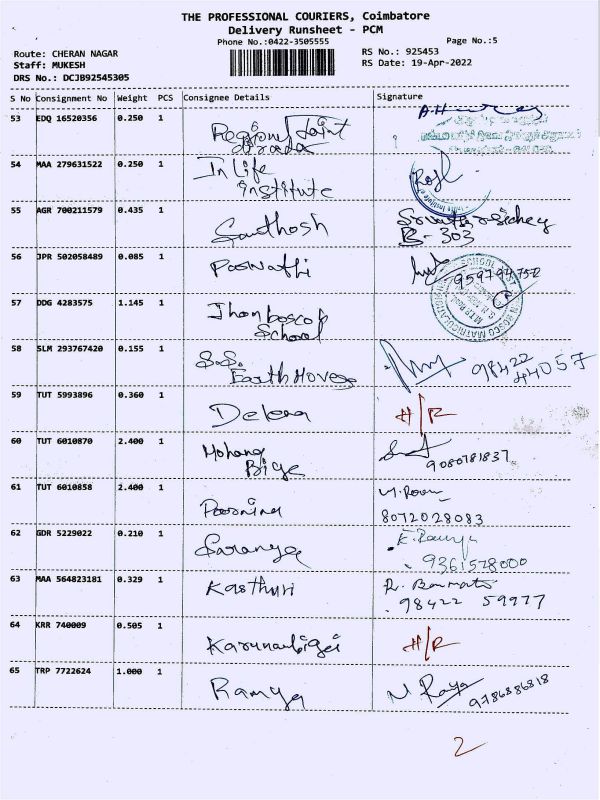 THE PROFESSIONAL COURIERS, Coimbatore
Delivery Runsheet - PCM
Phone No.:0422-3505555
Page No.:5
Route: CHERAN NAGAR
RS No.: 925453
Staff: MUKESH
RS Date: 19-Apr-2022
DRS No.: DCJB92545305
S No Consignment No Weight PCS Consignee Details Signature
53 EDQ 16520356 0.250 1 Regional Joint
54 MAA 279631522 0.250 1 In Life
institute
55 AGR 700211579 0.435 1 Santhosh
B-303
56 JPR 502058489 0.085 1 Parvathi
57 DDG 4283575 1.145 1 Jhon bosco
School
58 SLM 293767420 0.155 1 S.S.
Earth Moves 98422
44057
59 TUT 5993896 0.360 1 H/R
60 TUT 6010870 2.400 1 Mohana
9080781837
61 TUT 6010858 2.400 1 Poornima
8072028083
62 GDR 5229022 0.210 1 Saranya E. Ramya
9361578000
63 MAA 564823181 0.329 1 Kasthuri
98422 59977
64 KRR 740009 0.505 1 H/R
65 TRP 7722624 1.000 1 Ramya
9786886818
2